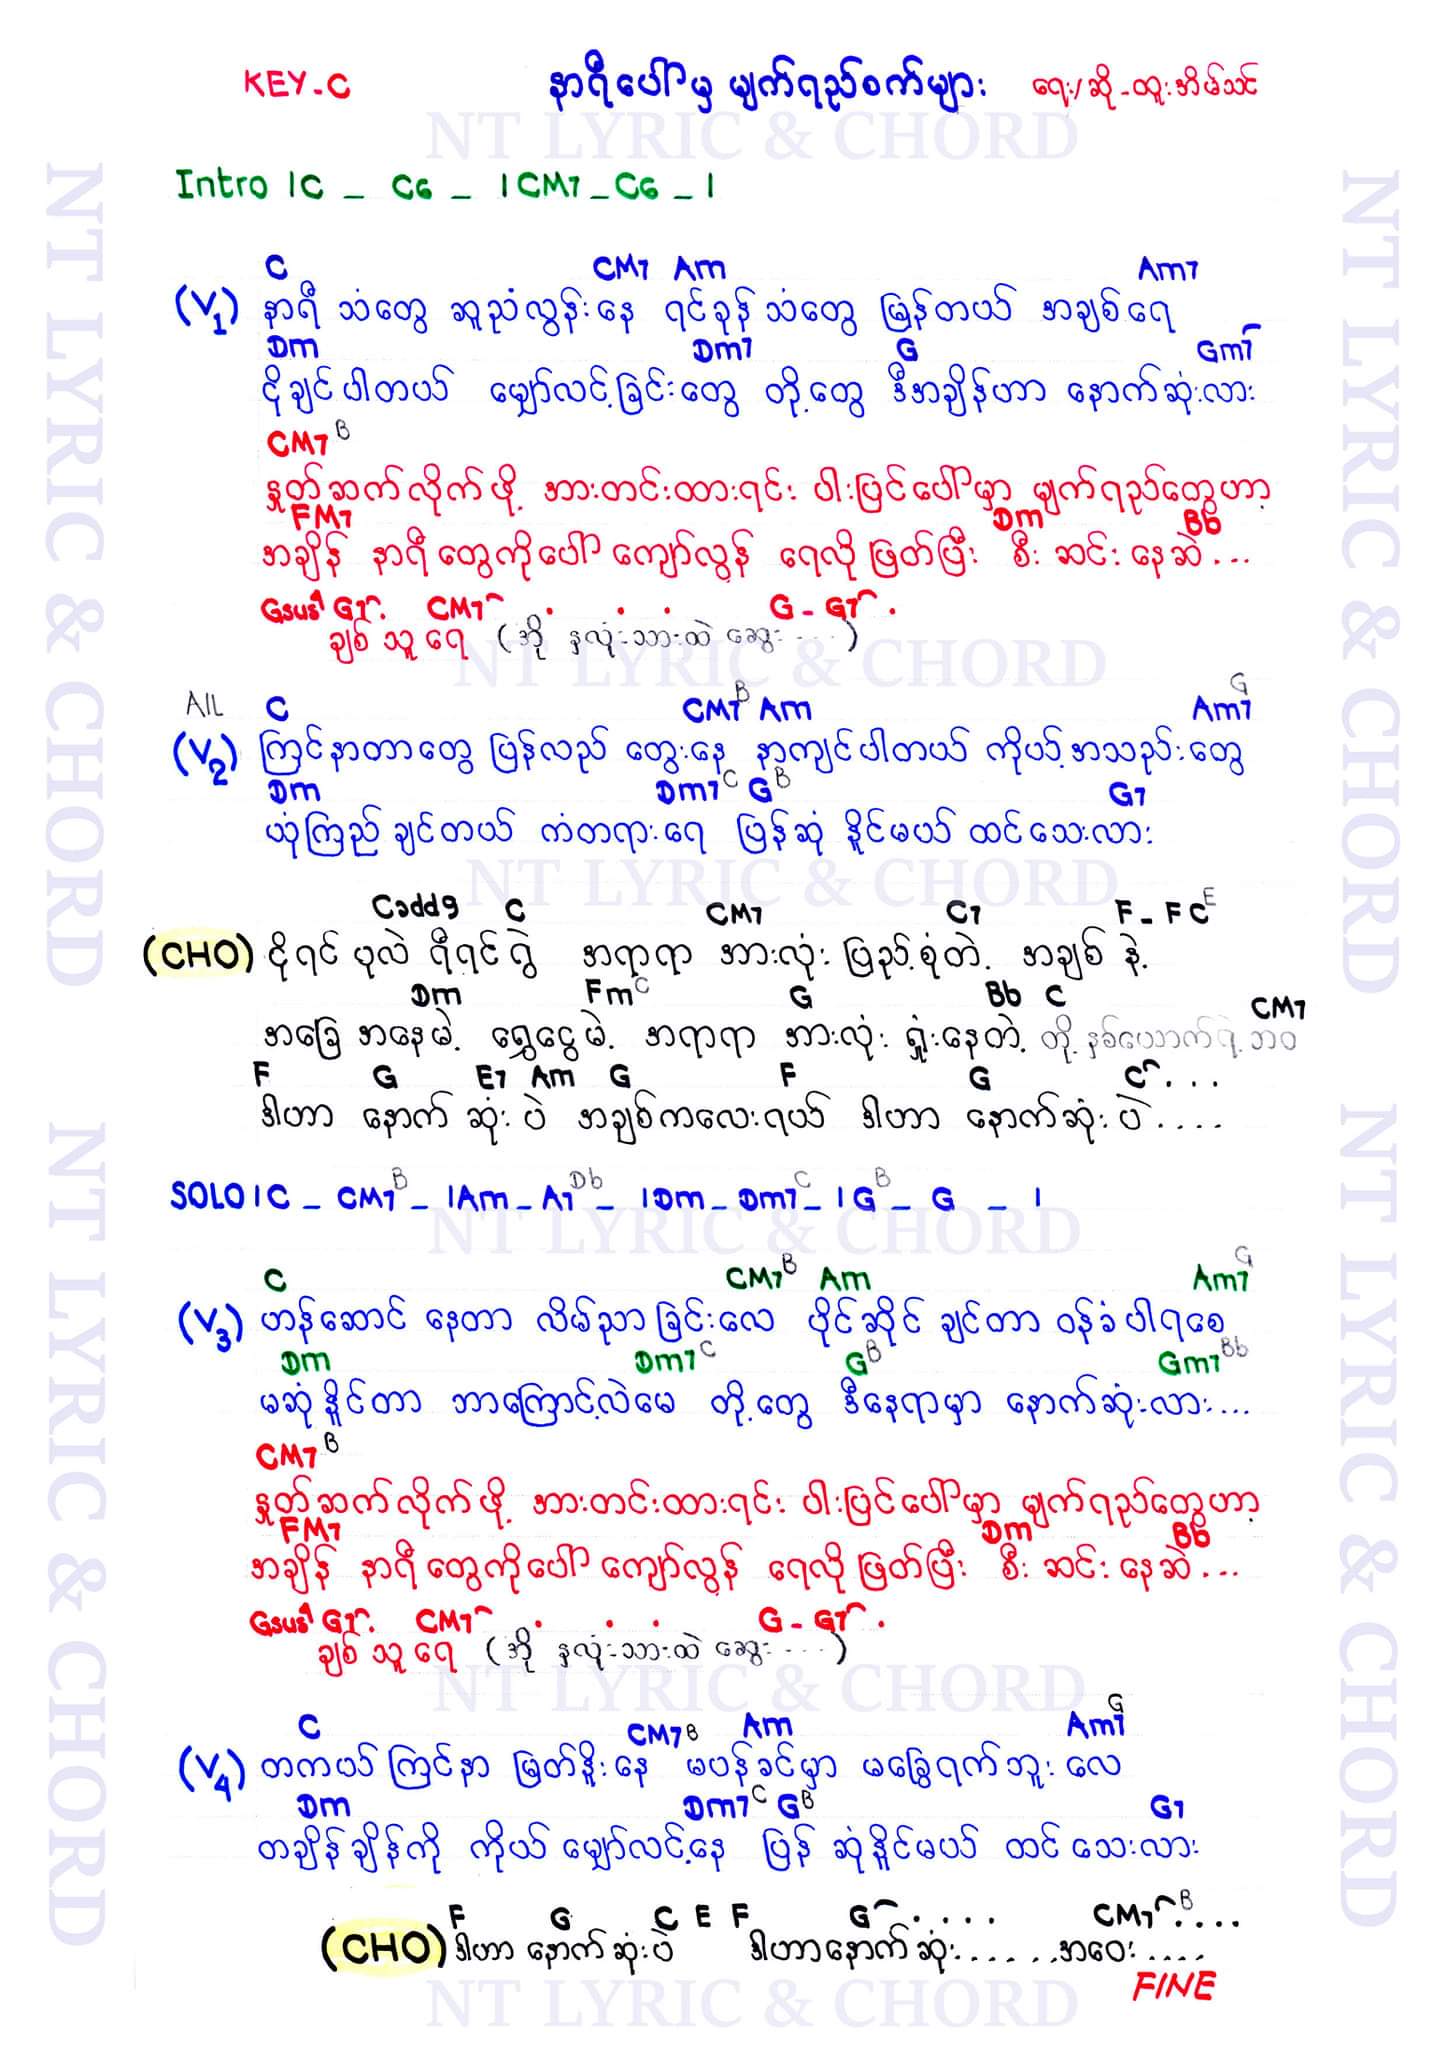 KEY-C နာရီပေါ်မှ မျက်ရည်စက်များ ရေး/ဆို-ထူးအိမ်သင်
NT LYRIC & CHORD
Intro | C _ C6 _ | CM7 _ C6 _ |
C CM7 Am Am7
(V1) နာရီ သံတွေ ဆူညံလွန်းနေ ရင်ခုန် သံတွေ မြန်တယ် အချစ်ရေ
Dm Dm7 G Gm7
ငိုချင်ပါတယ် မျှော်လင့်ခြင်းတွေ တို့တွေ ဒီအချိန်ဟာ နောက်ဆုံးလား
CM7 B
နှုတ်ဆက်လိုက်ဖို့ အားတင်းထားရင်း ပါးပြင်ပေါ်မှာ မျက်ရည်တွေဟာ့
FM7 Dm Bb
အချိန် နာရီတွေကိုပေါ် ကျော်လွန် ရေလိုဖြတ်ပြီး စီးဆင်းနေဆဲ...
Gsus4 G7. CM7 . . . G - G7.
ချစ်သူရေ (အို နှလုံးသားထဲ ဆွေး ....)
NT LYRIC & CHORD
All C CM7 B Am Am7 G
(V2) ကြင်နာတာတွေ ပြန်လည် တွေးနေ နာကျင်ပါတယ် ကိုယ့်အသည်းတွေ
Dm Dm7 C G B G7
ယုံကြည်ချင်တယ် ကံတရားရေ ပြန်ဆုံနိုင်မယ် ထင်သေးလား
NT LYRIC & CHORD
Cadd9 C CM7 C7 F - F C E
(CHO) ငိုရင်ပုလဲ ရီရင်ရွဲ အရာရာ အားလုံး ပြည့်စုံတဲ့ အချစ်နဲ့
Dm Fm C G Bb C CM7
အခြေအနေမဲ့ ရွှေငွေမဲ့ အရာရာ အားလုံး ရှုံးနေတဲ့ တို့နှစ်ယောက်ရဲ့ဘဝ
F G E7 Am G F G C . . .
ဒါဟာ နောက်ဆုံးပဲ အချစ်ကလေးရယ် ဒါဟာ နောက်ဆုံးပဲ....
SOLO | C _ CM7 B _ | Am _ A7 Db _ | Dm _ Dm7 C _ | G B _ G _ |
NT LYRIC & CHORD
C CM7 B Am Am7 G
(V3) ဟန်ဆောင်နေတာ လိမ်ညာခြင်းလေ ပိုင်ဆိုင်ချင်တာ ဝန်ခံပါရစေ
Dm Dm7 C G B Gm7 Bb
မဆုံနိုင်တာ ဘာကြောင့်လဲမေ တို့တွေ ဒီနေရာမှာ နောက်ဆုံးလား...
CM7 B
နှုတ်ဆက်လိုက်ဖို့ အားတင်းထားရင်း ပါးပြင်ပေါ်မှာ မျက်ရည်တွေဟာ့
FM7 Dm Bb
အချိန် နာရီတွေကိုပေါ် ကျော်လွန် ရေလိုဖြတ်ပြီး စီးဆင်းနေဆဲ...
Gsus4 G7. CM7 . . . G - G7.
ချစ်သူရေ (အို နှလုံးသားထဲ ဆွေး ....)
NT LYRIC & CHORD
C CM7 B Am Am7 G
(V4) တကယ် ကြင်နာ မြတ်နိုးနေ မပန်ခင်မှာ မခြွေရက်ဘူးလေ
Dm Dm7 C G B G7
တချိန်ချိန်ကို ကိုယ်မျှော်လင့်နေ ပြန်ဆုံနိုင်မယ် ထင်သေးလား
F G C E F G . . . . CM7 B . . . .
(CHO) ဒါဟာ နောက်ဆုံးပဲ ဒါဟာနောက်ဆုံး.......အဝေး....
FINE
NT LYRIC & CHORD
NT LYRIC & CHORD
NT LYRIC & CHORD
NT LYRIC & CHORD
NT LYRIC & CHORD